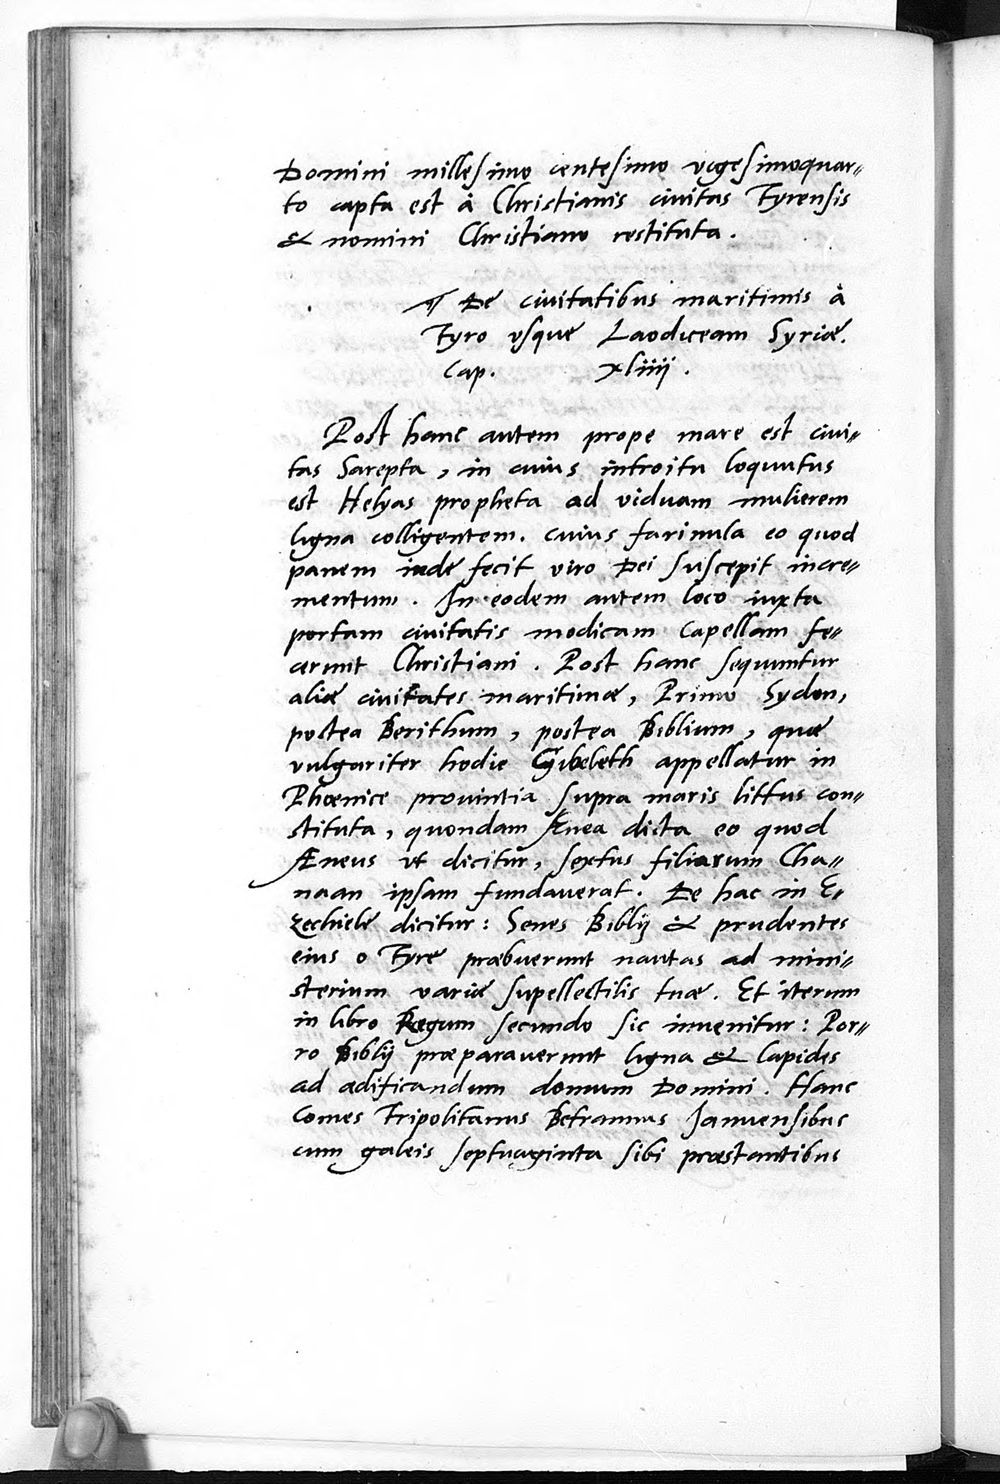 Domini millesimo centesimo vigesimoquar=
to capta est à Christianis civitas Tyrensis
& nomini Christiano restituta.
¶ De civitatibus maritimis à
Tyro vsque Laodiceam Syriæ.
Cap. xliiij.
Post hanc autem prope mare est civi=
tas Sarepta, in cuius introitu loquutus
est Helyas propheta ad viduam mulierem
ligna colligentem. cuius farinula eo quod
panem inde fecit viro Dei suscepit incre=
mentum. In eodem autem loco iuxta
portam civitatis modicam Capellam fe=
cerunt Christiani. Post hanc sequuntur
aliæ civitates maritimæ, Primo Sydon,
postea Berithum, postea Biblium, quæ
vulgariter hodie Gibeleth appellatur in
Phœnice provintia supra maris littus con=
stituta, quondam Ænea dicta eo quod
Æneus vt dicitur, sextus filiarum Cha=
naan ipsam fundaverat. De hac in E=
zechiele dicitur: Senes Biblij & prudentes
eius o Tyre præbuerunt nautas ad mini=
sterium variæ supellectilis tuæ. Et iterum
in libro Regum secundo sic invenitur: Por=
ro Biblij præparaverunt ligna & lapides
ad ædificandum domum Domini. Hanc
Comes Tripolitanus Betrannus Januensibus
cum galeis septuaginta sibi præstantibus